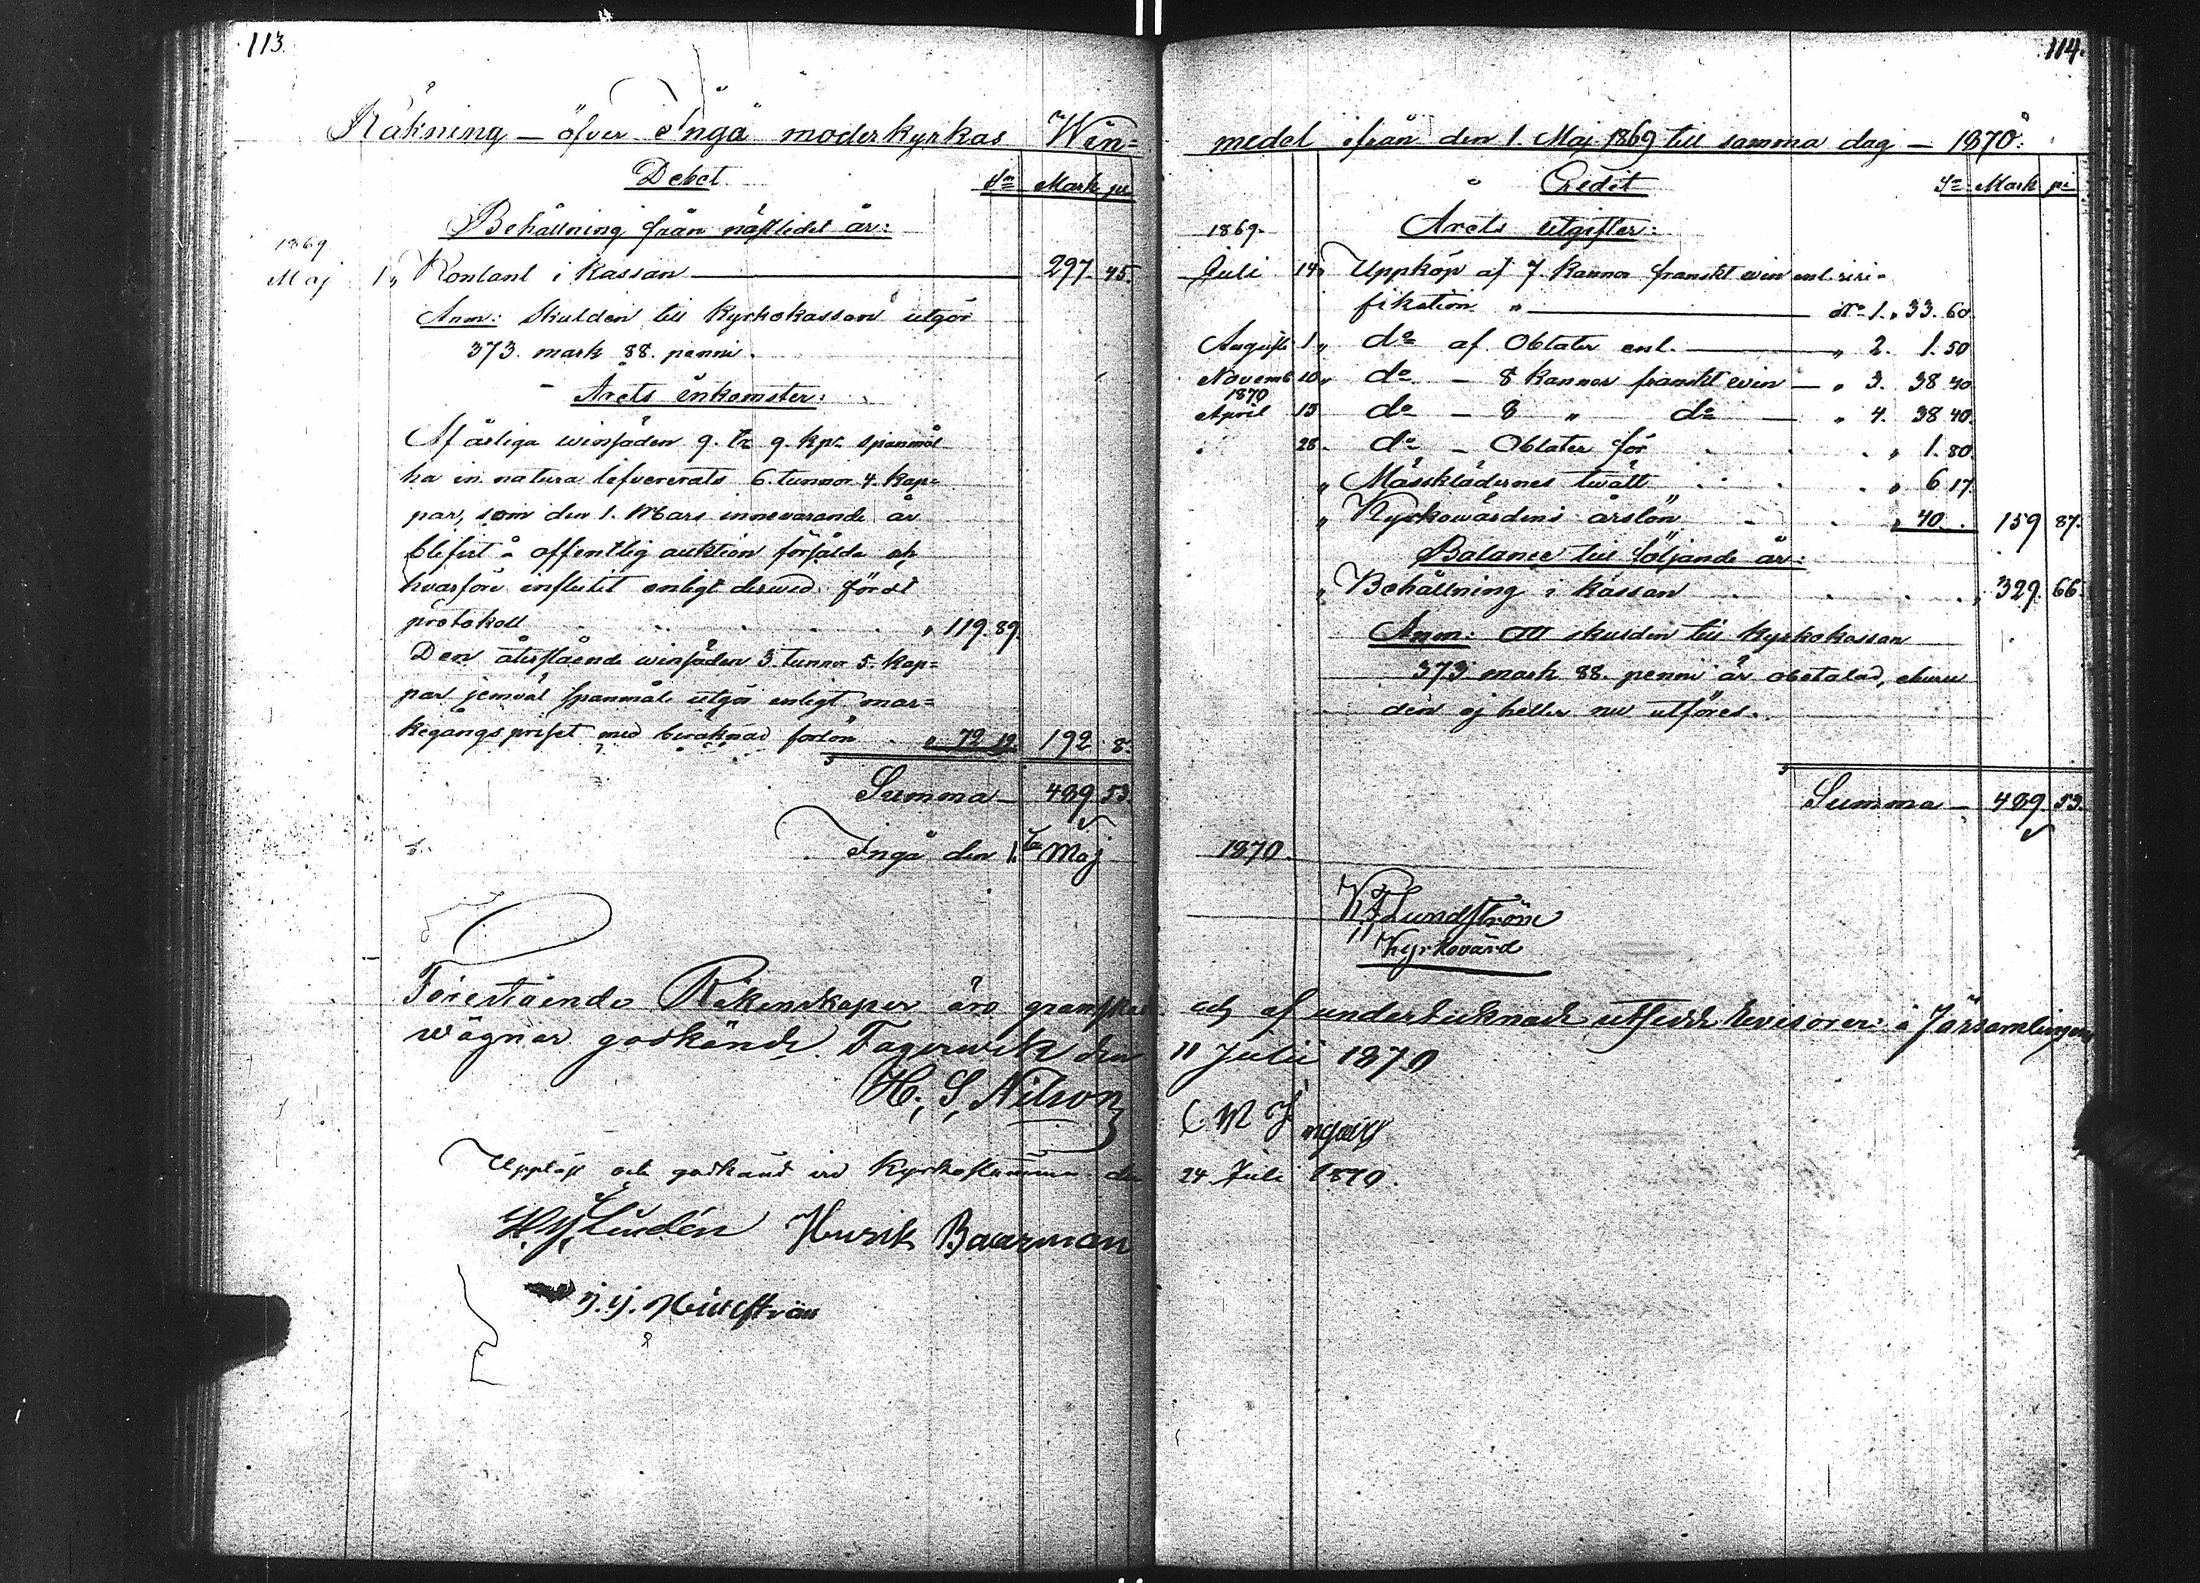 113.
Räkning – öfver Ingå moderkyrkas Win=
Debet. Sm Mark pi
Behållning från näftlidet år:
1869
Maj 1 " Kontant i Kassan 297. 45.
Anm: Skulden till Kyrkokassan utgör
373. mark 88. penni.
Årets inkomster:
Af årliga winsäden 9. tr 9. kpr spanmål
ha in natura lefvererats 6. tunnor 4. kap=
par, som den 1. Mars innevarande år
blifvit å offentlig auktion försålda och
hvarföre influtit enligt derwid fördt
protokoll " 119. 89.
Den återstående winsäden 3. tunnor 5. kap=
par jemväl spanmål utgör enligt mar=
kegångspriset med beräknad forlön " 72 19. 192. 8.
Summa – 489 53.
Ingå den 1. Maj
Förestående Räkenskaper äro granskade
wägnar godkände. Fagerwik den
H. S. Nilson
Uppläst och godkänd vid Kyrkostämma den
Lindén Henrik Baarman
114.
medel ifrån den 1. Maj 1869 till samma dag – 1870.
Credit Sa Mark pi
1869. Årets utgifter:
Juli 14 " Uppköp af 7. Kannor franskt win enl. veri=
fikation " No 1. " 33. 60.
Augusti 1 " do af Oblater enl. " 2. 1. 50
Novemb 10 " do – 8 Kannor franskt win – " 3. 38 40.
1870
April 13 do – 8 " do – " 4. 38 40.
28. do – Oblater för " 1. 80.
" Mässklädernes twätt " 6 17.
" Kyrkowärdens årslön " 40. . 159 87.
Balance till följande år:
" Behållning i Kassan " 329. 66.
Anm: Att skulden till Kyrkokassan
373 mark 88. penni är obetalad, ehuru
den ej heller nu utföres.
Summa – 489 53.
1870.
Lundström
Kyrkovärd
och af undertecknade utsedde Revisorer å Församlingens
11 Julii 1870
24 Juli 1870.